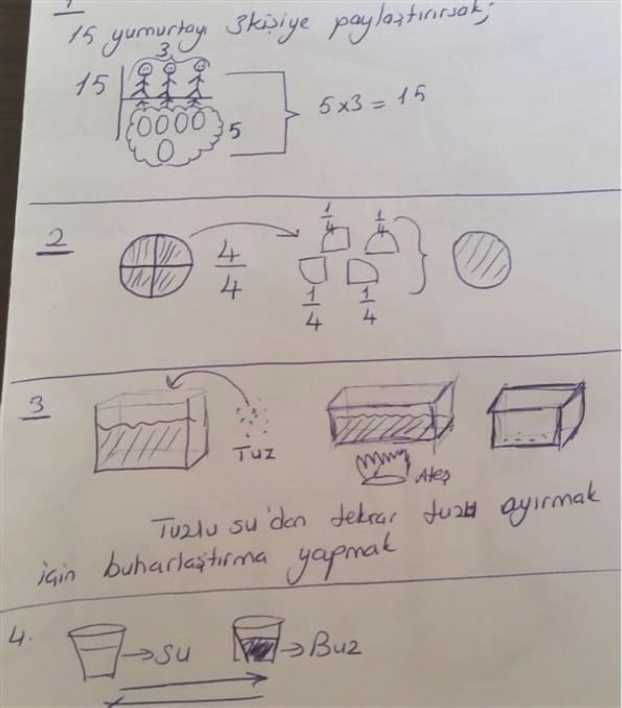 1
15 yumurtayı 3kişiye paylaştırırsak;
3
15
5
5x3 = 15
2
4/4
1/4 1/4
1/4 1/4
3
Tuz
Ateş
Tuzlu su'dan tekrar tuzu ayırmak
için buharlaştırma yapmak
4.
Su
Buz